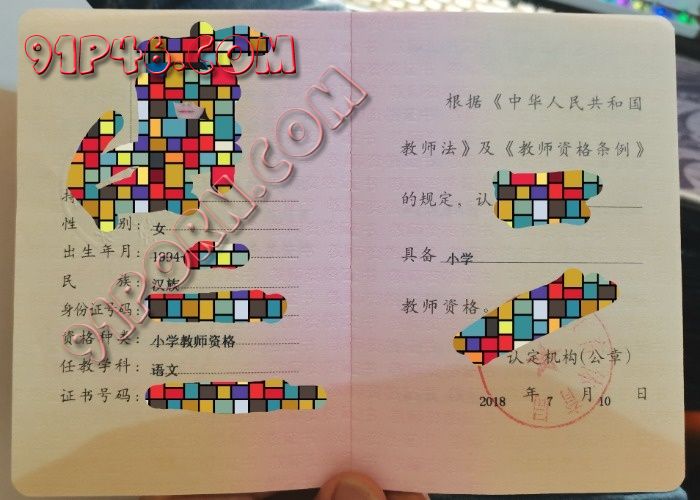 91P46.COM
91PORN.COM
性 别: 女
出生年月: 1994
民 族: 汉族
身份证号码:
资格种类: 小学教师资格
任教学科: 语文
证书号码:
根据《中华人民共和国
教师法》及《教师资格条例》
的规定, 认
具备 小学
教师资格。
认定机构(公章)
2018 年 7 月 10 日